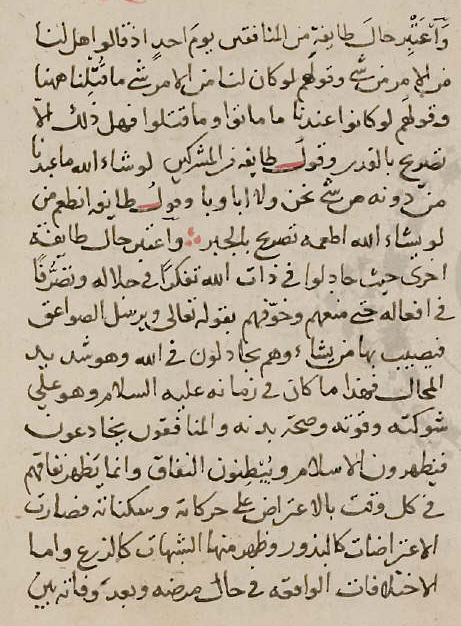 وَاعْتَبِر حالَ طايفة من المنافقين يومَ احدٍ اذ قالوا هل لنا
من الامر من شي وقولهم لو كان لنا من الامر شي ما قُتِلنا ههنا
وقولهم لو كانوا عندنا ما ماتوا وما قتلوا فهل ذلك الّا
تصريح بالقدر وقول طايفة من المشركين لو شاء الله ما عبدنا
من دونه من شي نحن ولا اباونا وقول طايفة انطعم من
لو يشاء الله اطعمه تصريح بالجبر واعتبر حال طايفة
اخرى حيث جادلوا في ذات الله تفكرًا في جلاله وتصرُّفًا
في افعاله حتى منعهم وخوّفهم بقوله تعالى ويرسل الصواعق
فيصيب بها من يشاء وهم يجادلون في الله وهو شديد
المحال فهذا ما كان في زمانه عليه السلام وهو على
شوكته وقوته وصحة بدنه والمنافقون يخادعون
فيظهرون الاسلام ويُبْطِنون النفاق وانما يظهر نفاقهم
في كل وقت بالاعتراض على حركاته وسكناته فصارت
الاعتراضات كالبذور وظهر منها الشبهات كالزرع واما
الاختلافات الواقعة في حال مرضه وبعد وفاته بين